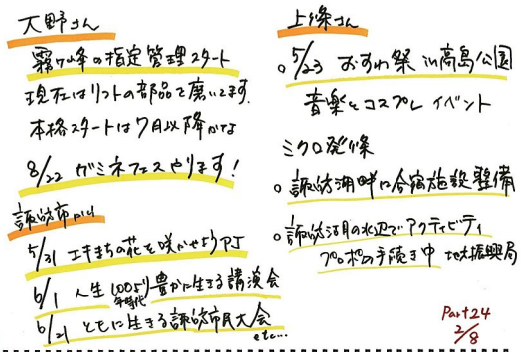 大野さん
霧ヶ峰の指定管理スタート
現在はリフトの部品を磨いてます。
本格スタートは7月以降かな
8/22 ガミネフェスやります！
諏訪市より
5/31 エキまちの花を咲かせようPJ
6/1 人生100年時代 豊かに生きる講演会
6/21 ともに生きる諏訪市民大会
etc...
上條さん
○5/23 おすわ祭 in 高島公園
音楽とコスプレ イベント
ミクロ発條
○諏訪湖畔に合宿施設整備
○諏訪湖の水辺でアクティビティ
プロポの手続き中 地域振興局
Part24
2/8